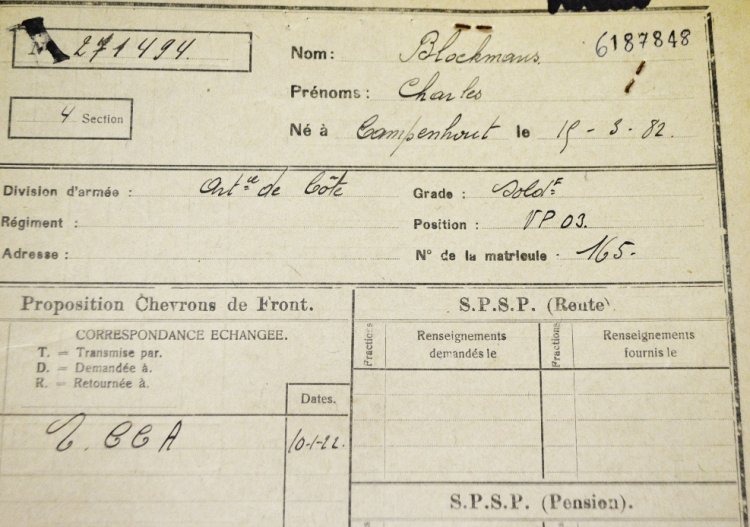 N 271494.
6187848
Nom: Blockmans.
Prénoms: Charles
4 Section
Né à Campenhout le 15-3-82.
Division d'armée: Artie de Côte
Grade: Soldt
Régiment:
Position: VP 03.
Adresse:
N° de la matricule 165.
Proposition Chevrons de Front.
CORRESPONDANCE ECHANGEE.
T. = Transmise par.
D. = Demandée à.
R. = Retournée à.
Dates.
T. CCA 10-1-22.
S.P.S.P. (Route)
Fractions
Renseignements
demandés le
Fractions
Renseignements
fournis le
S.P.S.P. (Pension).